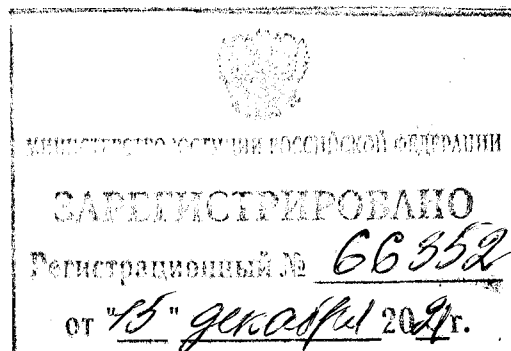 МИНИСТЕРСТВО ЮСТИЦИИ РОССИЙСКОЙ ФЕДЕРАЦИИ
ЗАРЕГИСТРИРОВАНО
Регистрационный № 66352
от "15" декабря 2021г.